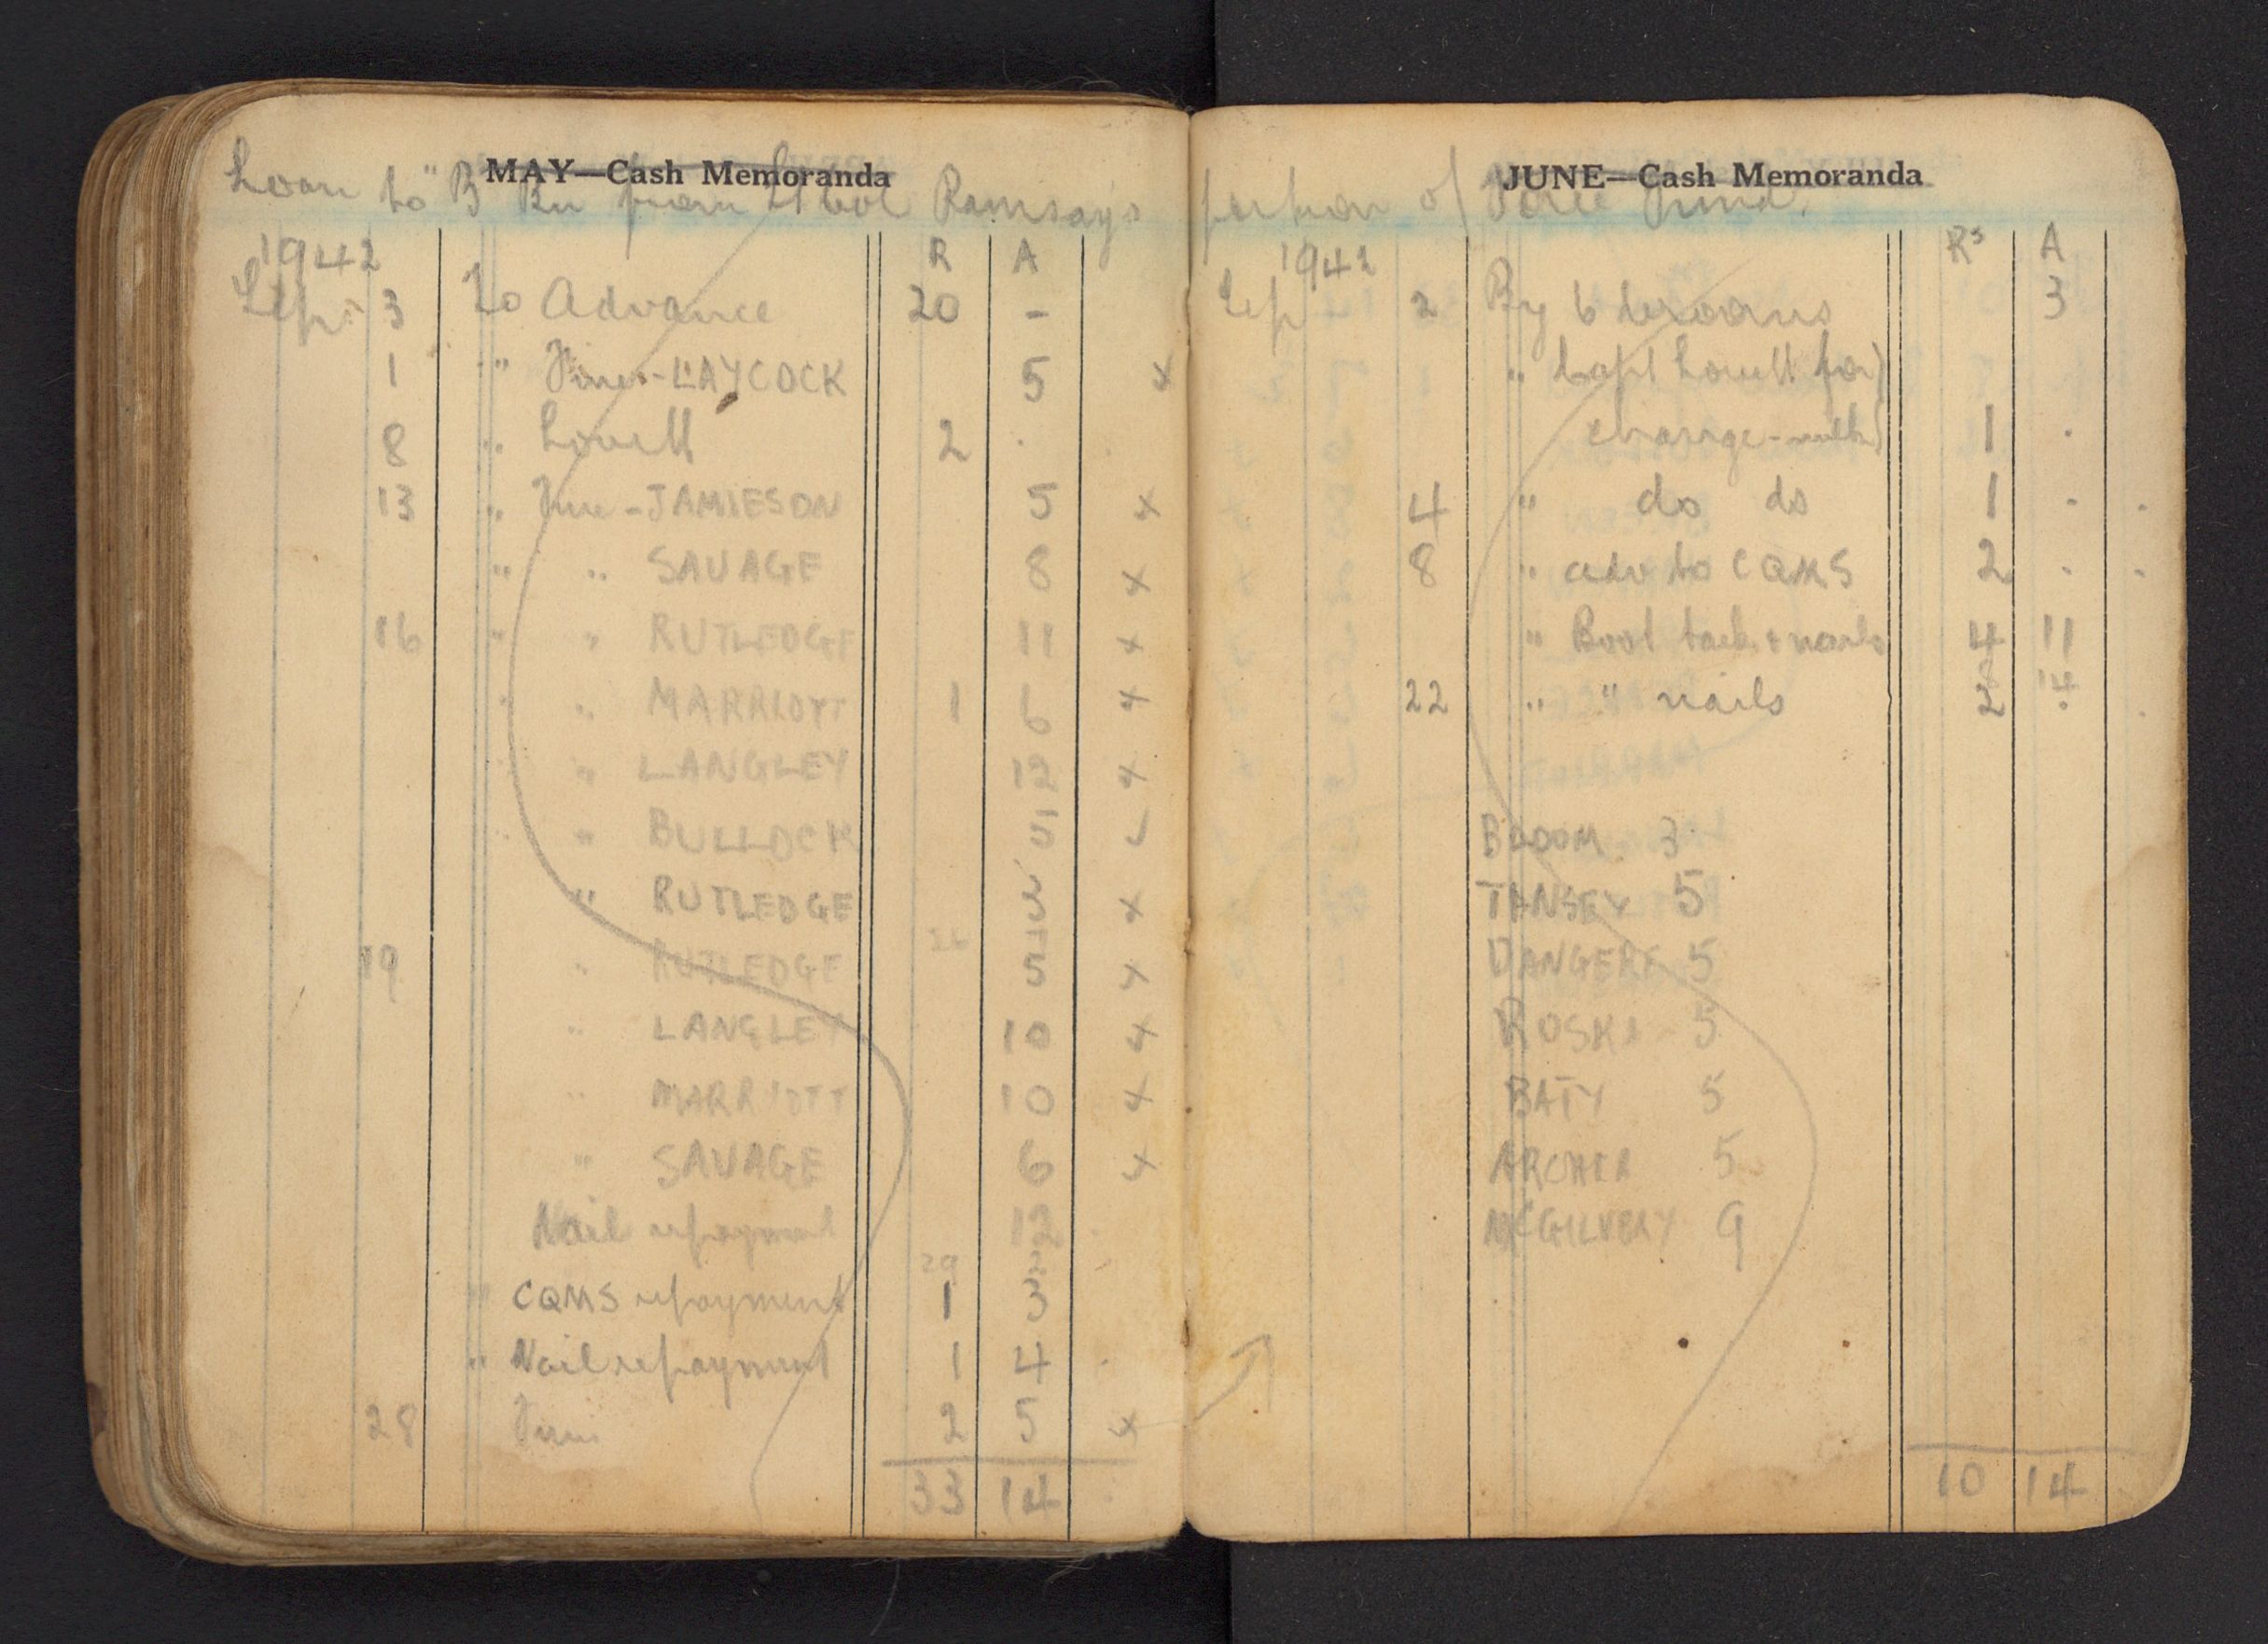 MAY—Cash Memoranda
Loan to "B" Bn from Lt Col Ramsay's portion of Force Fund.
1942 R A
Sep: 3 To Advance 20 -
1 " Fine - LAYCOCK 5 x
8 " Lovett 2 .
13 " Fine - JAMIESON 5 x
" " SAVAGE 8 x
16 " " RUTLEDGE 11 x
" " MARRIOTT 1 6 x
" LANGLEY 12 x
" BULLOCK 5
" RUTLEDGE x
19 " RUTLEDGE 5 x
" LANGLEY 10 x
" MARRIOTT 10 x
" SAVAGE 6 x
Nail repayment 12
29
" CQMS repayment 1 3
" Nail repayment 1 4
28 Fine 2 5 x
33 14
JUNE—Cash Memoranda
1942 Rs A
Sep 2 By 6 brooms 3
" Capt Lovett for)
change - 1 .
4 " do do 1 .
8 " adv to CQMS 2 .
" Boot tacks + nails 4 11
22 " " nails 2 14
3
TANSEY 5
5
ROSKI 5
BATY 5
ARCHER 5
McGILVERY 9
10 14